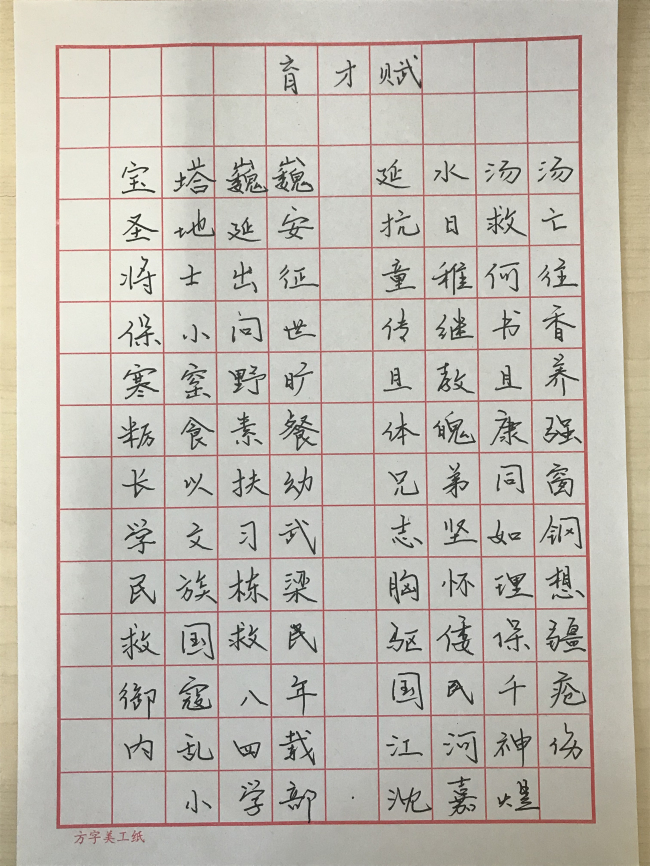 育才赋
宝塔巍巍 延水汤汤
圣地延安 抗日救亡
将士出征 童稚何往
保小问世 传继书香
寒窑野旷 且教且养
粝食素餐 体魄康强
长以扶幼 兄弟同窗
学文习武 志坚如钢
民族栋梁 胸怀理想
救国救民 驱倭保疆
御寇八年 国民千疮
内乱四载 江河神伤
小学部·沈嘉煜
方字美工纸